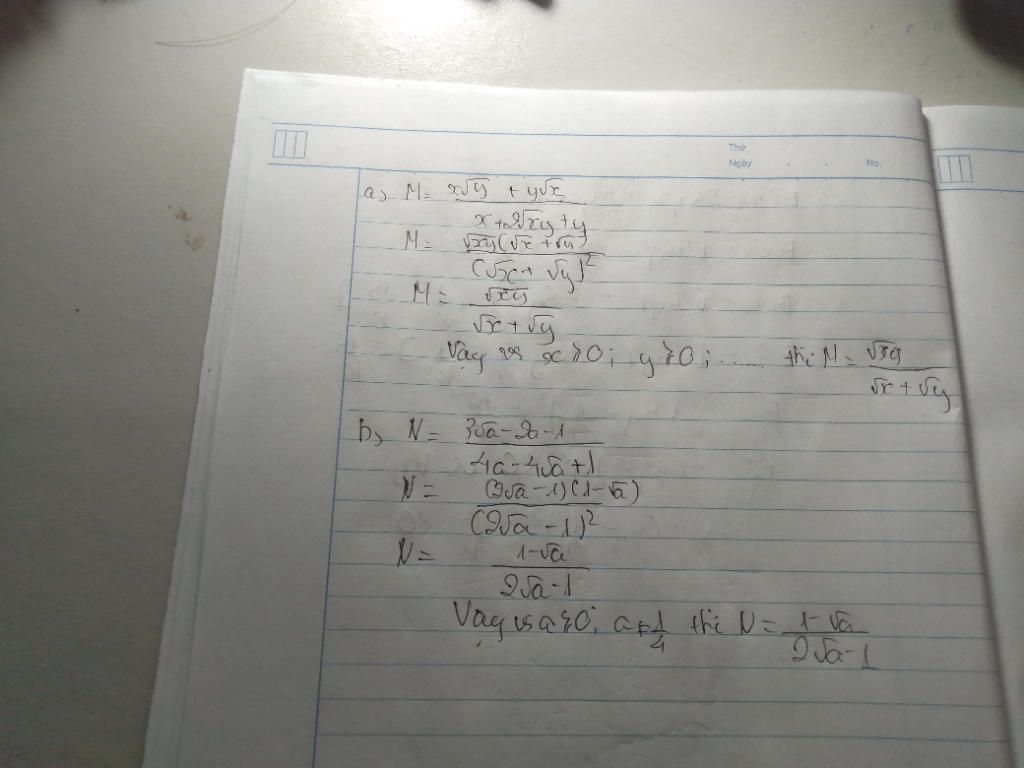 Thứ
Ngày . . No.
a, M = \frac{x\sqrt{y} + y\sqrt{x}}{x + 2\sqrt{xy} + y}
M = \frac{\sqrt{xy}(\sqrt{x} + \sqrt{y})}{(\sqrt{x} + \sqrt{y})^2}
M = \frac{\sqrt{xy}}{\sqrt{x} + \sqrt{y}}
Vậy vs x ≥ 0; y ≥ 0; ..... thì M = \frac{\sqrt{xy}}{\sqrt{x} + \sqrt{y}}
b, N = \frac{3\sqrt{a} - 2a - 1}{4a - 4\sqrt{a} + 1}
N = \frac{(2\sqrt{a} - 1)(1 - \sqrt{a})}{(2\sqrt{a} - 1)^2}
N = \frac{1 - \sqrt{a}}{2\sqrt{a} - 1}
Vậy vs a ≥ 0; a ≠ \frac{1}{4} thì N = \frac{1 - \sqrt{a}}{2\sqrt{a} - 1}